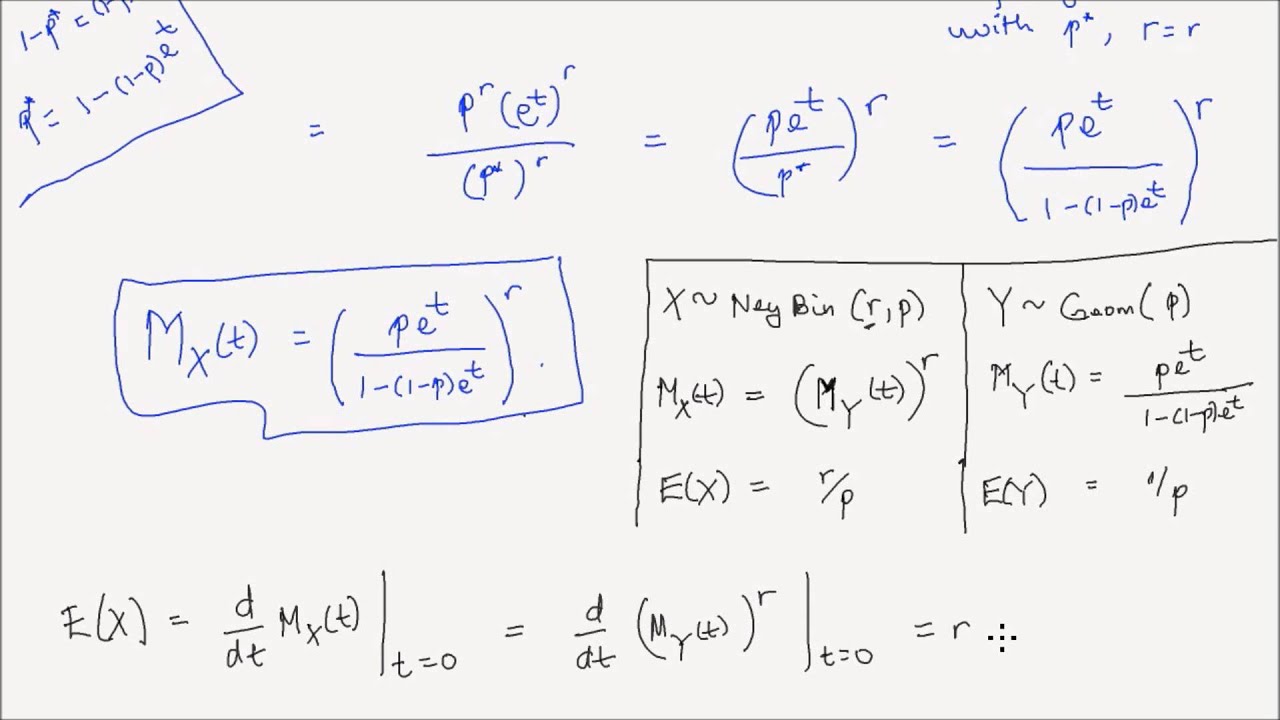 1-p* = (1-p
p* = 1-(1-p)e^t
with p*, r=r
= p^r (e^t)^r / (p*)^r = (pe^t / p*)^r = (pe^t / 1-(1-p)e^t)^r
M_X(t) = (pe^t / 1-(1-p)e^t)^r .
X ~ Neg Bin (r,p)
M_X(t) = (M_Y(t))^r
E(X) = r/p
Y ~ Geom(p)
M_Y(t) = pe^t / 1-(1-p)e^t
E(Y) = 1/p
E(X) = d/dt M_X(t) |_{t=0} = d/dt (M_Y(t))^r |_{t=0} = r